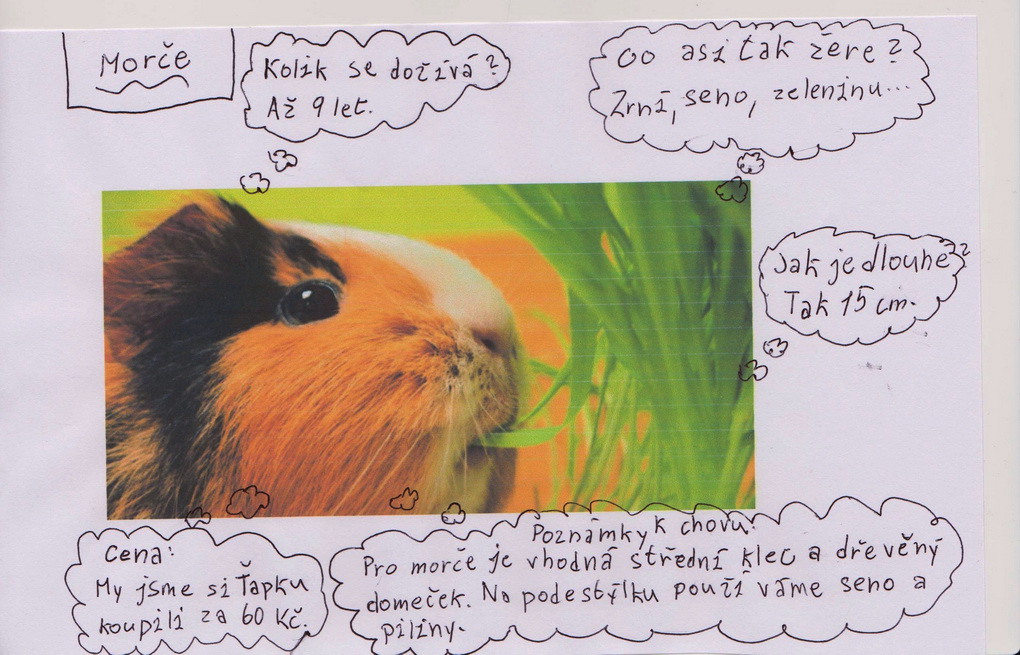 Morče
Kolik se dožívá?
Až 9 let.
Co asi tak žere?
Zrní, seno, zeleninu...
Jak je dlouhé??
Tak 15 cm.
Cena:
My jsme si Ťapku
koupili za 60 Kč.
Poznámky k chovu:
Pro morče je vhodná střední klec a dřevěný
domeček. Na podestýlku používáme seno a
piliny.